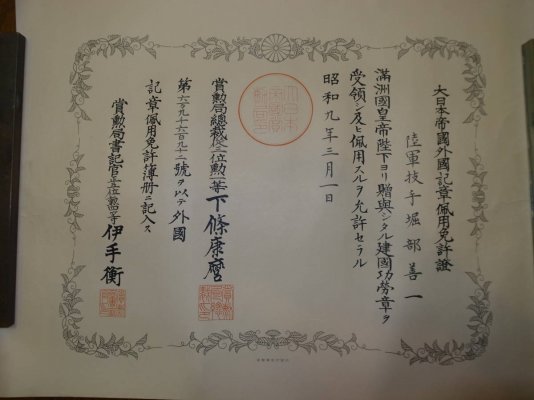 大日本帝國外國記章佩用免許證
陸軍技手堀部善一
滿洲國皇帝陛下ヨリ贈與シタル建國功勞章ヲ
受領シ及ヒ佩用スルヲ允許セラル
昭和九年三月一日
賞勲局總裁從三位勲一等下條康麿
第六万九千六百九十二號ヲ以テ外國
記章佩用免許簿册ニ記入ス
賞勲局書記官正五位勲四等伊手衡